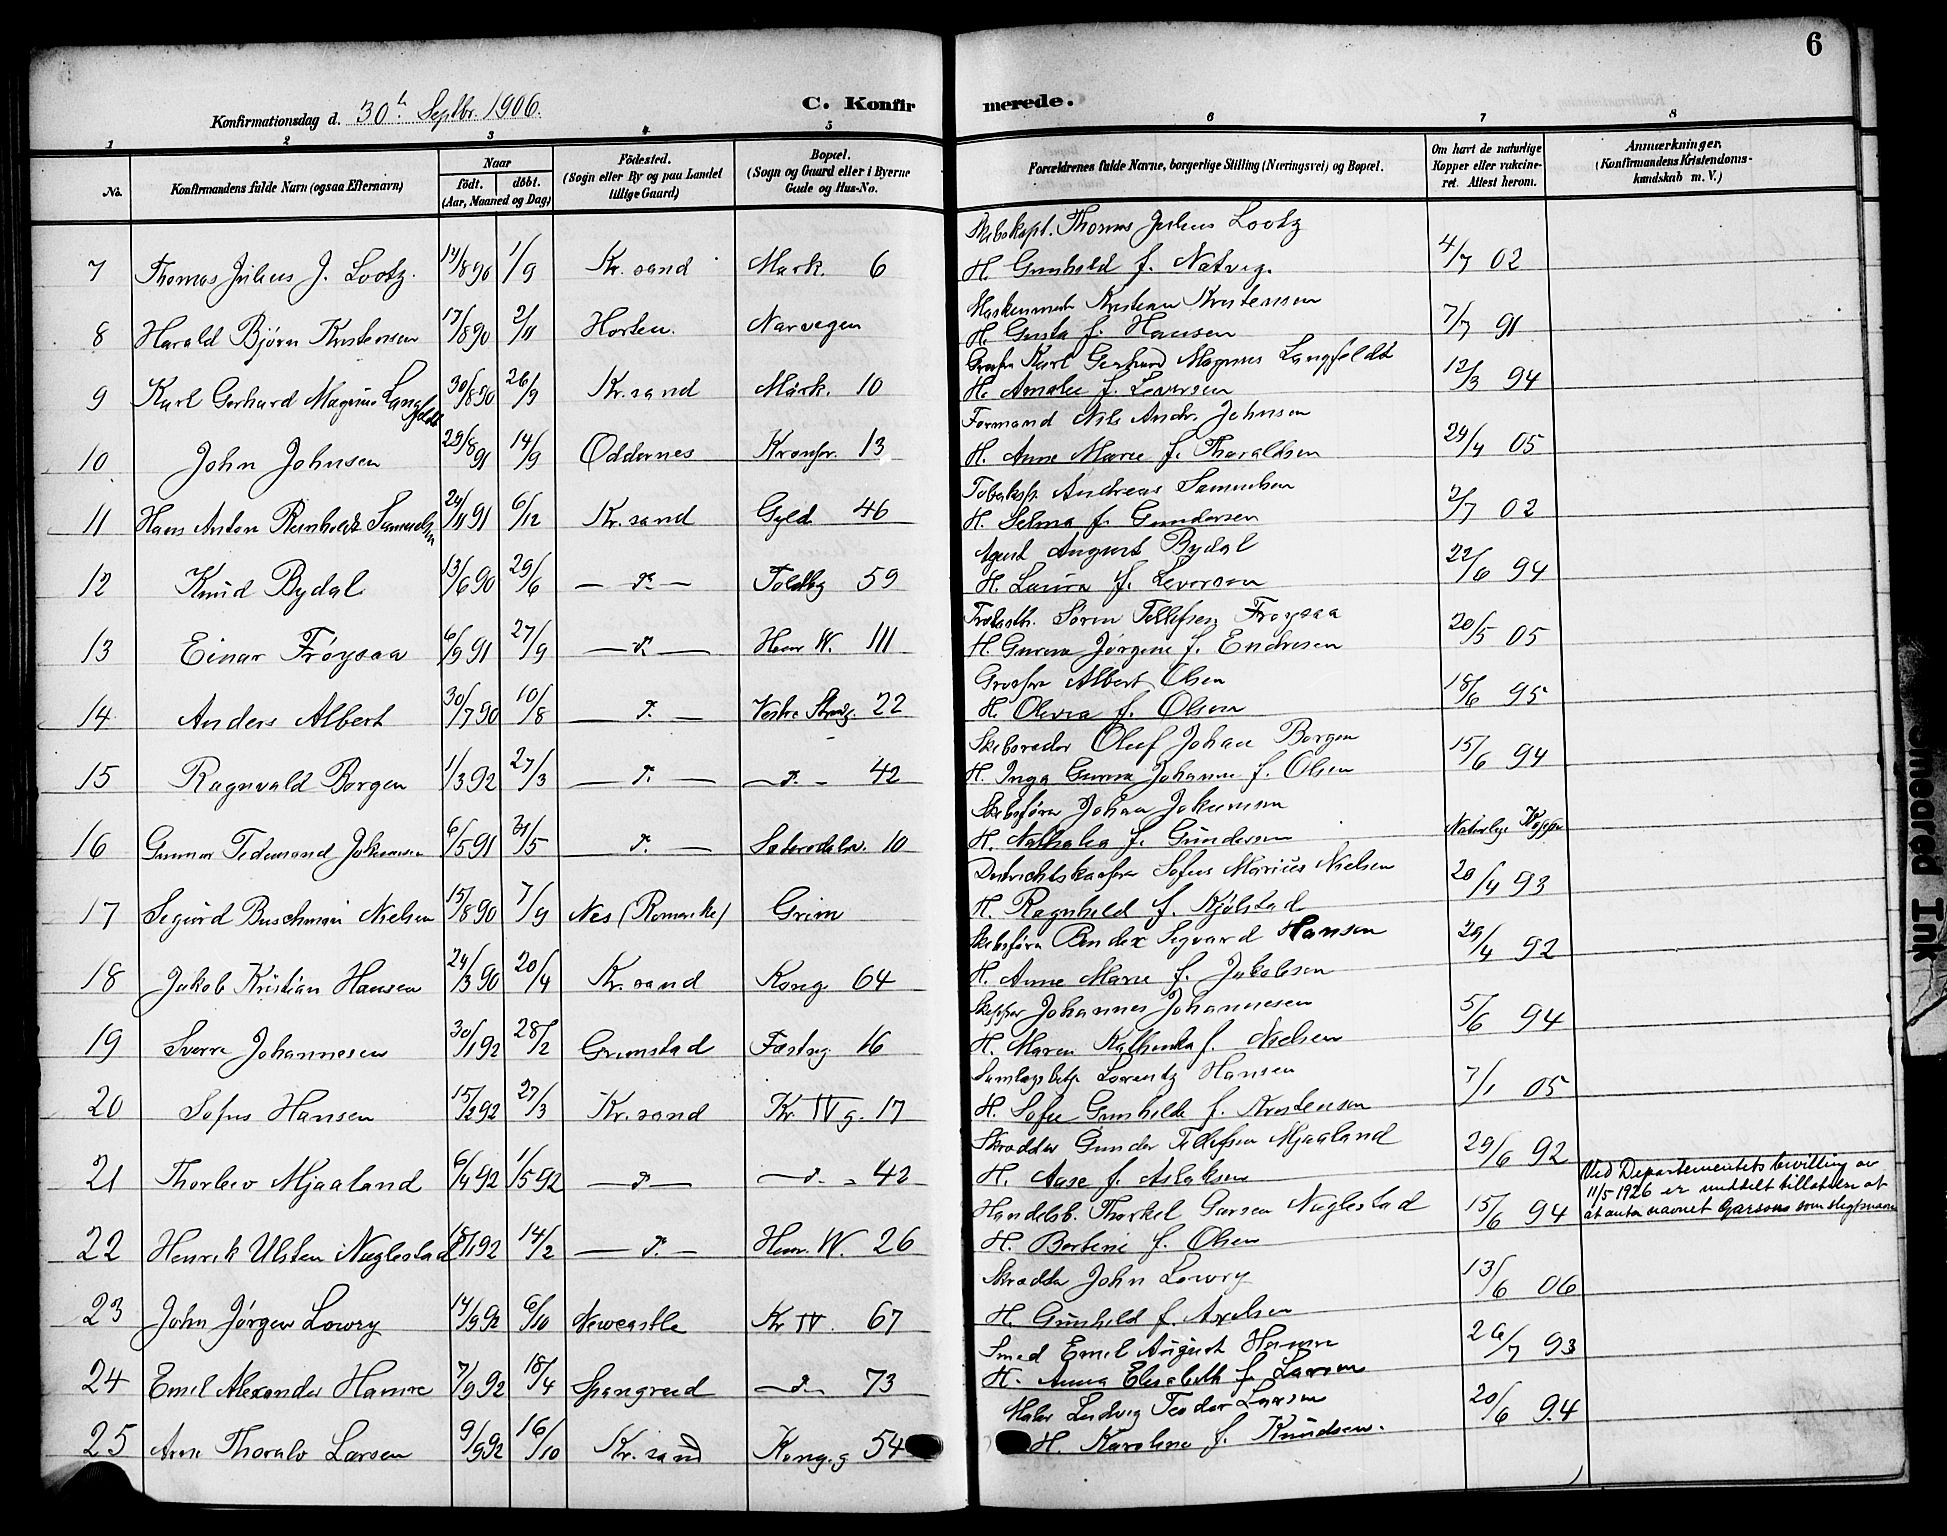 6
Konfirmationsdag d. 30t Septbr. 1906.
C. Konfirmerede.
1 2 3 4 5 6 7 8
No. Konfirmandens fulde Navn (ogsaa Efternavn) Naar født. døbt. (Aar, Maaned og Dag) Fødested. (Sogn eller By og paa Landet tillige Gaard) Bopæl. (Sogn og Gaard eller i Byerne Gade og Hus-No. Forældrenes fulde Navne, borgerlige Stilling (Næringsvei) og Bopæl. Om havt de naturlige Kopper eller vakcineret. Attest herom. Anmerkninger. (Konfirmandens Kristendomskundskab m. V.)
Skibskapt. Thomas Julius Lootz
7 Thomas Julius J. Lootz. 14/8 90 1/9 Kr. sand Mark. 6 H. Gunhild f. Natvig. 4/7 02
Maskinmstr Kristian Kristensen
8 Harald Bjørn Kristensen 17/8 90 2/11 Horten. Narvegen H. Gusta f. Hansen 7/7 91
Grosfr Karl Gerhard Magnus Langfeldt
9 Karl Gerhard Magnus Langfeldt 30/8 90 26/9 Kr. sand Mark. 10 H. Amalie f. Leversen 12/3 94
Formand Nils Andr. Johnsen
10 John Johnsen 29/8 91 14/9 Oddernes Kronpr. 13 H. Anne Marie f. Thoraldsen 29/4 05
Andreas Samuelsen
11 Hans Anton Reinholdt Samuelsen 24/11 91 6/12 Kr. sand Gyld. 46 H. Selma f. Gundersen 2/7 02
Agent August Bydal
12 Knud Bydal 13/6 90 29/6 — d. — Toldbg 59 H. Laura f. Leversen 22/6 94
Søren Tellefsen Frøysaa
13 Einar Frøysaa 6/9 91 27/9 — d. — Henr W. 111 H. Gurine Jørgine f. Endresen 20/5 05
Grosfr Albert Olsen
14 Anders Albert 30/7 90 10/8 — d. — Vestre Strandg. 22 H. Olivia f. Olsen 18/6 95
Skibsreder Oluf Johan Borgen
15 Ragnvald Borgen 1/3 92 27/3 — d. — — d. — 42 H. Inga Gurine Johanne f. Olsen 15/6 94
Skibsfører Johan Jokumsen
16 Gunnar Tidemand Jokumsen 6/5 91 31/5 — d. — Setersdalsv. 10 H. Nathalia f. Gundersen Naturlige Kopper
Distriktskasfr Sofus Marius Nielsen
17 Sigurd Buschman Nielsen 15/8 90 7/9 Nes (Romerike) Grim H. Ragnhild f. Kjølstad 20/4 93
Skibsfører Bendix Sigvard Hansen
18 Jakob Kristian Hansen 24/3 90 20/4 Kr. sand Kong. 64 H. Anne Marie f. Jakobsen 29/4 92
Skipper Johannes Johannesen
19 Sverre Johannesen 30/1 92 28/2 Grimstad Fæstng 16 H. Maren Kathinka f. Nielsen 5/6 94
Samlagsbetj. Lorentz Hansen
20 Sofus Hansen 15/2 92 27/3 Kr. sand Kr. IV g. 17 H. Sofie Gunhilde f. Kristensen 7/1 05
Skrædder Gunder Tellefsen Mjaaland
21 Thorleiv Mjaaland 6/4 92 1/5 92 — d. — — d. — 42 H. Aase f. Aslaksen 29/6 92
Ved Departementets bevilling av
11/5 1926 er meddelt tillatelse til
at anta navnet Garsons som slegtsnavn
Handelsb. Thorkel Garsen Nuglestad
22 Henrik Ulsten Nuglestad 18/1 92 14/2 — d. — Henr. W. 26 H. Bertine f. Olsen 15/6 94
Skrædder John Lowry
23 John Jørgen Lowry 14/9 92 6/10 Newcastle Kr IV. 67 H. Gunhild f. Axelsen 13/6 06
Smed Emil August Hamre
24 Emil Alexander Hamre 7/9 92 18/4 Spangreid — d. — 73 H. Anna Elisabeth f. Larsen 26/7 93
Maler Ludvig Teodor Larsen
25 Arne Thoralv Larsen 9/9 92 16/10 Kr. sand Kong. g 54 H. Karoline f. Knudsen. 20/6 94
Smeared Ink